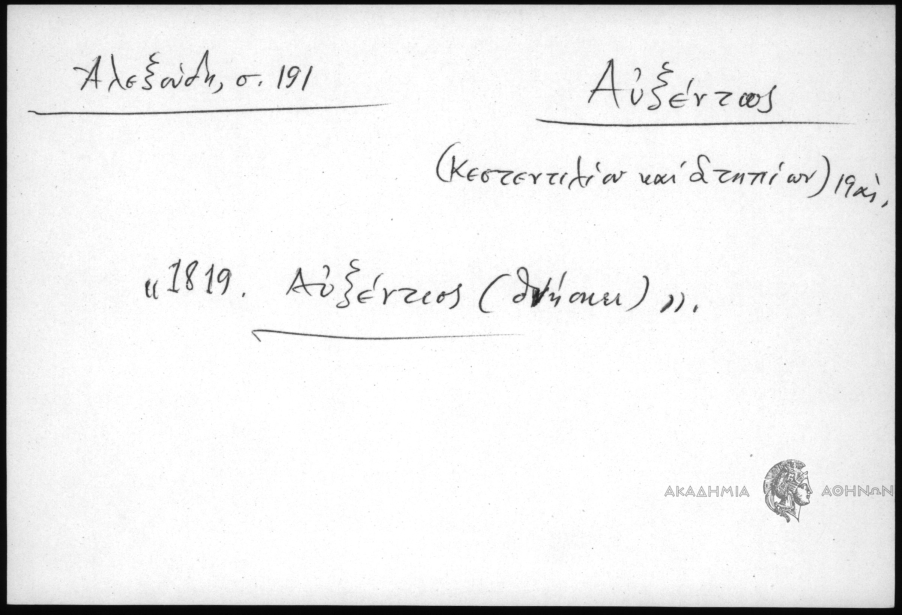 Ἀλεξούδη, σ. 191
Αὐξέντιος
(Κεστεντιλίου καὶ Στηπίων) 19 αἰ.
«1819. Αὐξέντιος (θνήσκει)».
ΑΚΑΔΗΜΙΑ ΑΘΗΝΩΝ